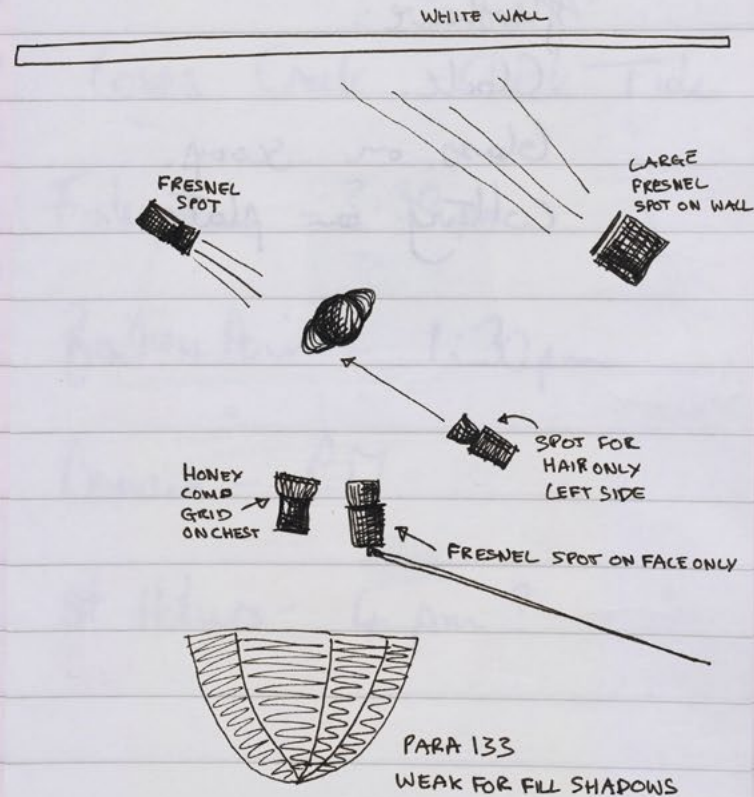 WHITE WALL
FRESNEL
SPOT
LARGE
FRESNEL
SPOT ON WALL
SPOT FOR
HAIR ONLY
LEFT SIDE
HONEY
COMB
GRID
ON CHEST
FRESNEL SPOT ON FACE ONLY
PARA 133
WEAK FOR FILL SHADOWS